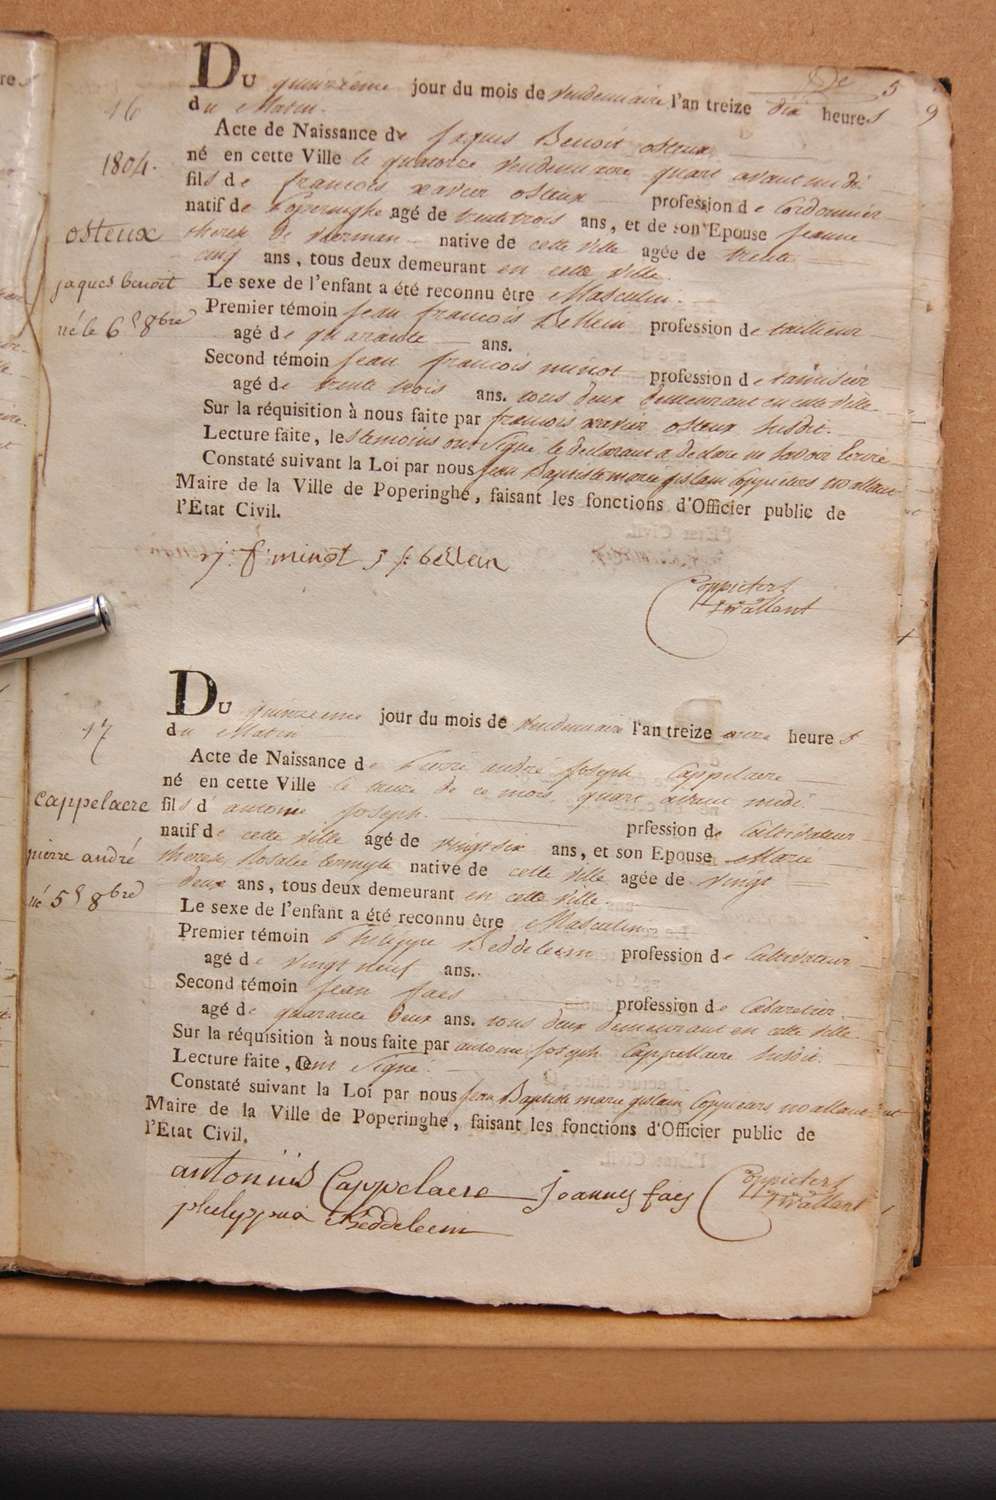 De 5
9
16
1804.
osteux
jaques benoit
né le 6 8bre
Du quinzième jour du mois de vendemiaire l'an treize dix heures
du Matin.
Acte de Naissance de Jaques Benoit osteux
né en cette Ville le quatorze vendemiaire quart avant midi
fils de francois xavier osteux profession de Cordonnier
natif de Poperinghe agé de trente trois ans, et de son Epouse Jeanne
therese de native de cette ville agée de trente
cinq ans, tous deux demeurant en cette ville.
Le sexe de l'enfant a été reconnu être Masculin.
Premier témoin Jean francois Bellein profession de tailleur
agé de quarante ans.
Second témoin Jean francois minot profession de
agé de trente trois ans. tous deux demeurant en cette ville
Sur la réquisition à nous faite par francois xavier osteux susdit.
Lecture faite, les temoins ont Signé le declarant a declaré ne savoir Ecrire
Constaté suivant la Loi par nous Jean Baptiste marie gislain Coppieters
Maire de la Ville de Poperinghe, faisant les fonctions d'Officier public de
l'Etat Civil.
j. f. minot j f: bellein
Coppieters
17
Cappelaere
pierre andré
né 5 8bre
Du quinzieme jour du mois de vendemiaire l'an treize onze heures
du Matin
Acte de Naissance de Pierre andré Joseph Cappelaere
né en cette Ville le treize de ce mois, quart avant midi
fils d' antoine Joseph. prfession de Cultivateur
natif de cette ville agé de vingt six ans, et son Epouse Marie
therese Rosalie native de cette ville agée de vingt
deux ans, tous deux demeurant en cette ville.
Le sexe de l'enfant a été reconnu être Masculin
Premier témoin Philippe Beddeleem profession de Cultivateur
agé de vingt neuf ans.
Second témoin Jean faes profession de Cabaretier.
agé de quarante deux ans. tous deux demeurant en cette ville
Sur la réquisition à nous faite par antoine Joseph Cappellaere susdit.
Lecture faite, ont Signé.
Constaté suivant la Loi par nous Jean Baptiste marie gislain Coppieters
Maire de la Ville de Poperinghe, faisant les fonctions d'Officier public de
l'Etat Civil.
antonius Cappelaere Joannes faes Coppieters
philyppus Beddeleem